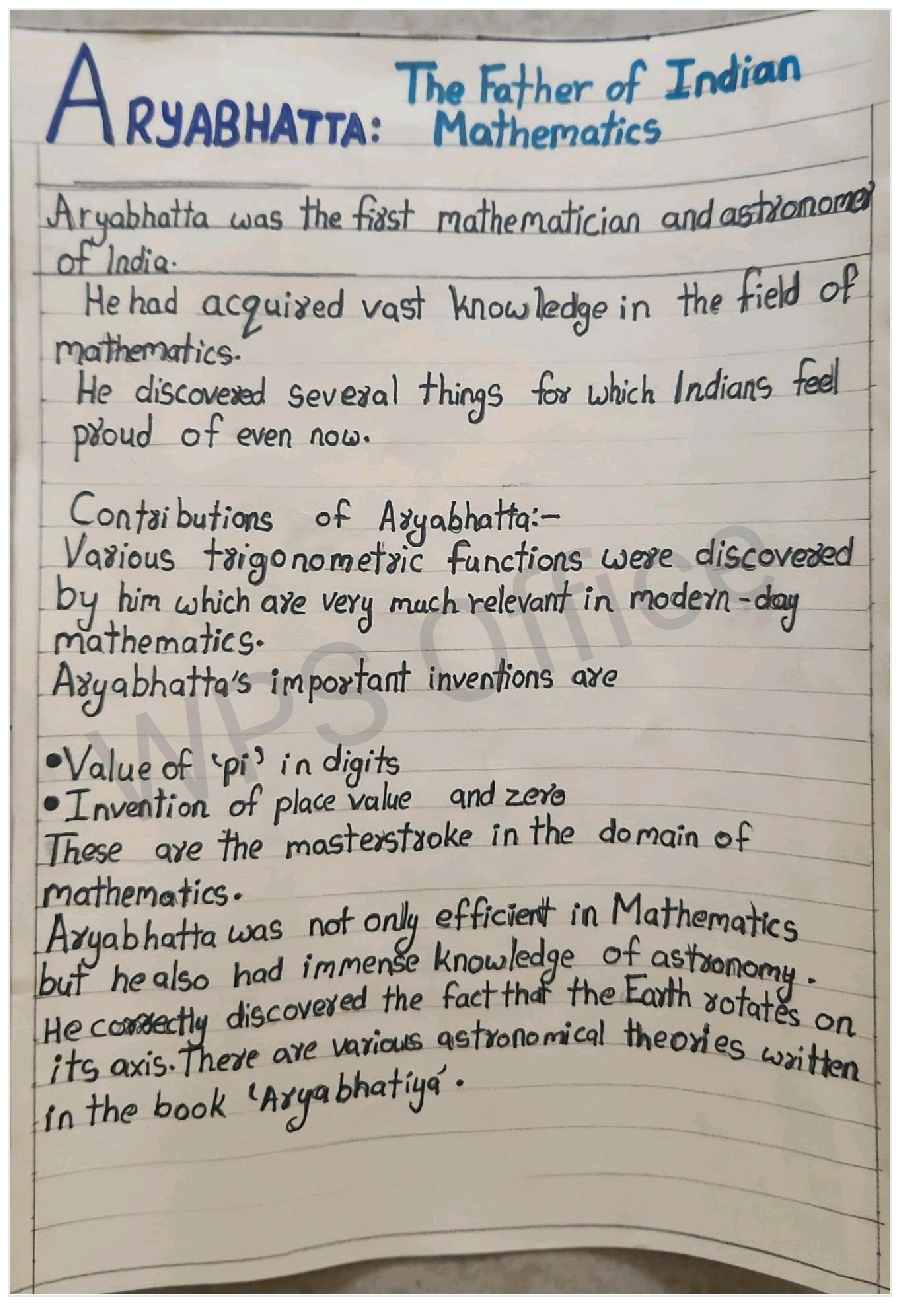 ARYABHATTA: The Father of Indian
Mathematics
Aryabhatta was the first mathematician and astronomer
of India.
He had acquired vast knowledge in the field of
mathematics.
He discovered several things for which Indians feel
proud of even now.
Contributions of Aryabhatta:-
Various trigonometric functions were discovered
by him which are very much relevant in modern-day
mathematics.
Aryabhatta's important inventions are
•Value of 'pi' in digits
•Invention of place value and zero
These are the masterstroke in the domain of
mathematics.
Aryabhatta was not only efficient in Mathematics
but he also had immense knowledge of astronomy.
He correctly discovered the fact that the Earth rotates on
its axis. There are various astronomical theories written
in the book 'Aryabhatiya'.
WPS Office